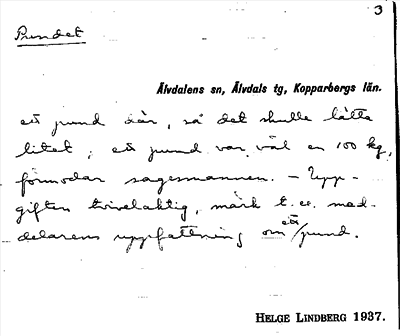 3
Pundet
Älvdalens sn, Älvdals tg, Kopparbergs län.
ett pund där, så det skulle lätta
litet; ett pund var väl en 100 kg,
förmodar sagesmannen. – Upp-
giften tvivelaktig, märk t. ex. med-
delarens uppfattning om ett pund.
HELGE LINDBERG 1937.